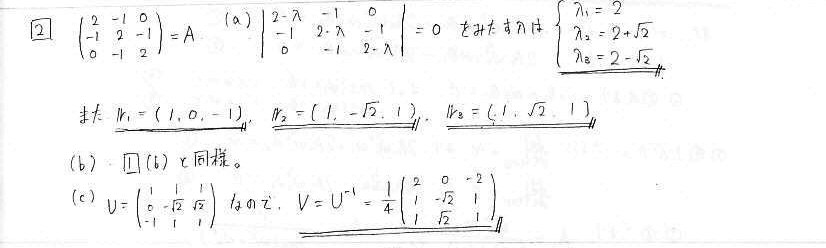 2 (2 -1 0 / -1 2 -1 / 0 -1 2) = A (a) |2-λ -1 0 / -1 2-λ -1 / 0 -1 2-λ| = 0 をみたすλは { λ₁ = 2 / λ₂ = 2+√2 / λ₃ = 2-√2
また 𝕍₁ = (1, 0, -1), 𝕍₂ = (1, -√2, 1), 𝕍₃ = (1, √2, 1)
(b) 1 (b) と同様。
(c) U = (1 1 1 / 0 -√2 √2 / -1 1 1) なので, V = U⁻¹ = 1/4 (2 0 -2 / 1 -√2 1 / 1 √2 1)